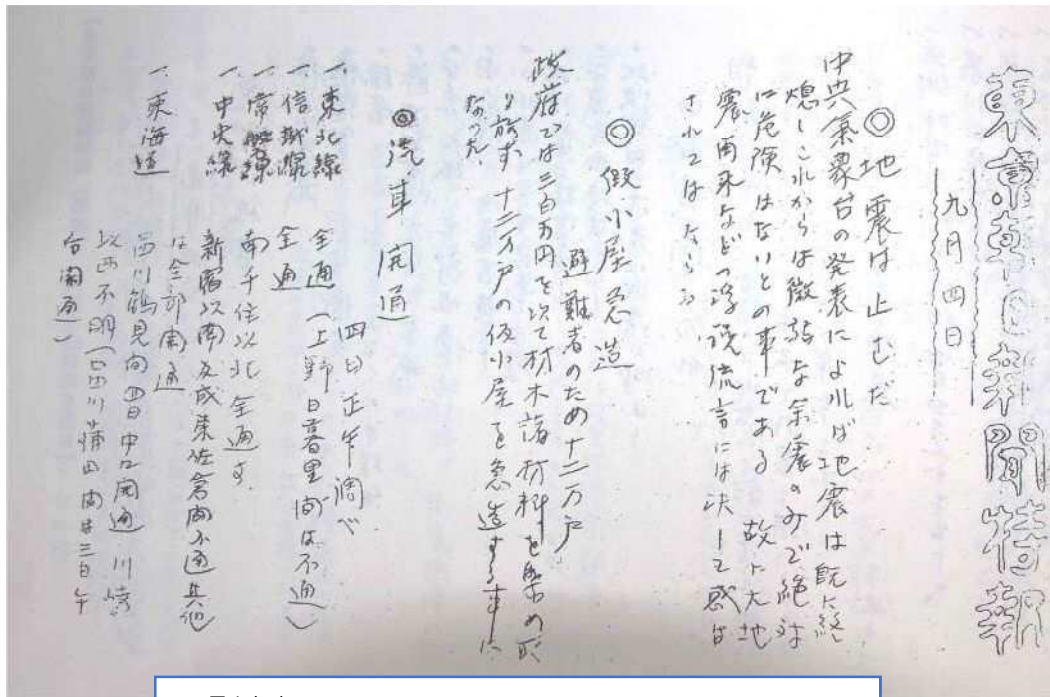 東京朝日新聞情報
九月四日
◎地震は止むだ
中央氣象台の発表によれば地震は既に終
熄しこれからは微弱な余震のみで絶対
に危険はないとの事である 故に大地
震再来などの浮説流言には決して惑は
されてはならぬ
◎假小屋急造
避難者のため十二万戸
政府では三百万円を以て材木諸材料を集め
十二万戸の仮小屋を急造する事に
なった
◎汽車開通
四日正午調べ
一、東北線 全通(上野日暮里間は不通)
一、信越線 全通
一、常磐線 南千住以北全通す
一、中央線 新宿以南及成東佐倉間不通其他
は全部開通
一、東海道 品川鶴見間四日中に開通 川崎
以西不明(品川蒲田間は三日午
后開通)